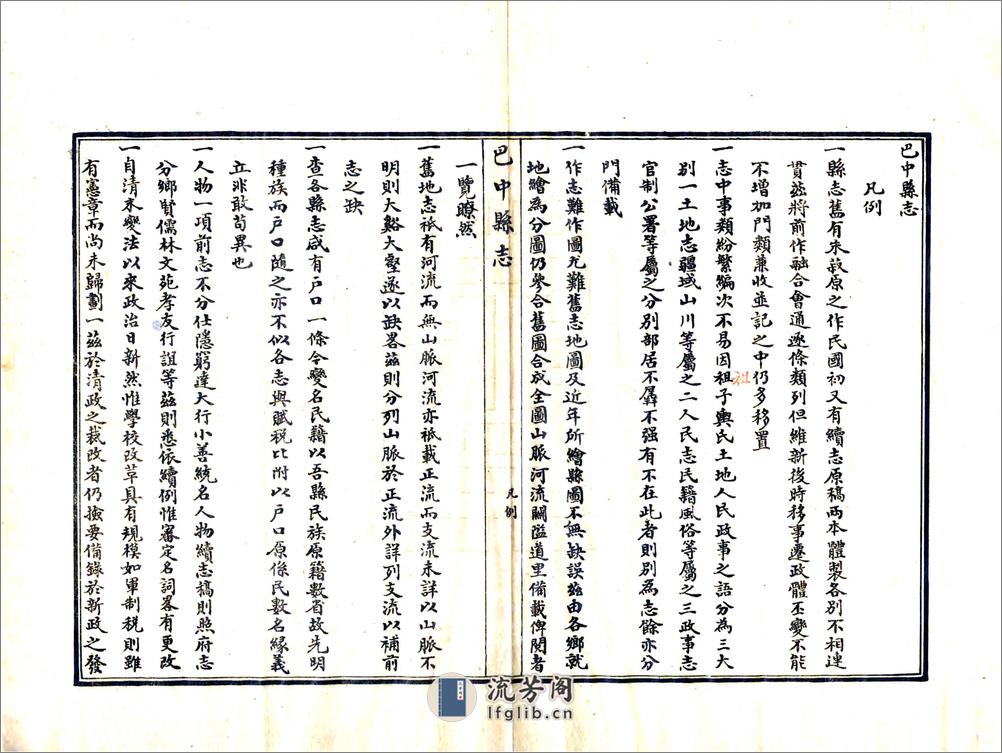 巴中縣志
凡例
一縣志舊有朱蓺原之作民國初又有續志原稿兩本體製各別不相連
貫茲將前作融合會通逐條類列但維新後時移事遷政體丕變不能
不增加門類兼收並記之中仍多移置
一志中事類紛繁編次不易因祖子輿氏土地人民政事之語分為三大
祖
別一土地志疆域山川等屬之二人民志民籍風俗等屬之三政事志
官制公署等屬之分別部居不羼不强有不在此者則別為志餘亦分
門備載
一作志難作圖尤難舊志地圖及近年所繪縣圖不無缺誤茲由各鄉就
地繪為分圖仍參合舊圖合成全圖山脈河流關隘道里備載俾閱者
巴中縣志
凡例
一覽瞭然
一舊地志祇有河流而無山脈河流亦祇載正流而支流未詳以山脈不
明則大谿大壑遂以缺畧茲則分列山脈於正流外詳列支流以補前
志之缺
一查各縣志咸有戶口一條今變名民籍以吾縣民族原籍數省故先明
種族而戶口隨之亦不似各志與賦稅比附以戶口原係民數名緣義
立非敢苟異也
一人物一項前志不分仕隱窮達大行小善統名人物續志稿則照府志
分鄉賢儒林文苑孝友行誼等茲則悉依續例惟審定名詞畧有更改
一自清末變法以來政治日新然惟學校改革具有規模如軍制稅則雖
有憲章而尚未歸劃一茲於清政之裁改者仍撿要備錄於新政之發
流芳阁
lfglib.cn